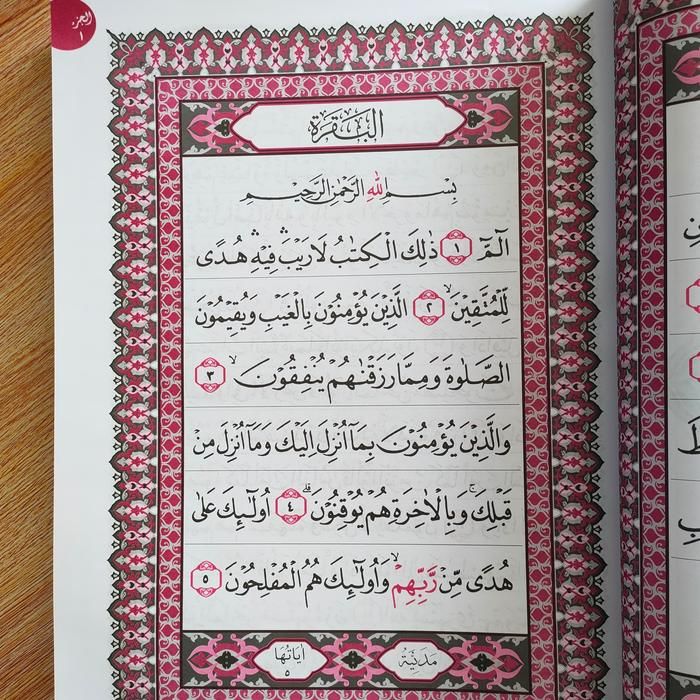 الجزء
١
البقرة
بِسْمِ اللهِ الرَّحْمٰنِ الرَّحِيمِ
الٓمٓ ١ ذٰلِكَ الْكِتٰبُ لَا رَيْبَ ۛ فِيهِ ۛ هُدًى
لِّلْمُتَّقِينَ ۙ ٢ الَّذِينَ يُؤْمِنُونَ بِالْغَيْبِ وَيُقِيمُونَ
الصَّلٰوةَ وَمِمَّا رَزَقْنٰهُمْ يُنْفِقُونَ ۙ ٣
وَالَّذِينَ يُؤْمِنُونَ بِمَآ اُنْزِلَ اِلَيْكَ وَمَآ اُنْزِلَ مِنْ
قَبْلِكَ ۚ وَبِالْاٰخِرَةِ هُمْ يُوقِنُونَ ۗ ٤ اُولٰٓئِكَ عَلٰى
هُدًى مِّنْ رَّبِّهِمْ ۙ وَاُولٰٓئِكَ هُمُ الْمُفْلِحُونَ ٥
مَدَنِيَّةٌ اٰيَاتُهَا
٥